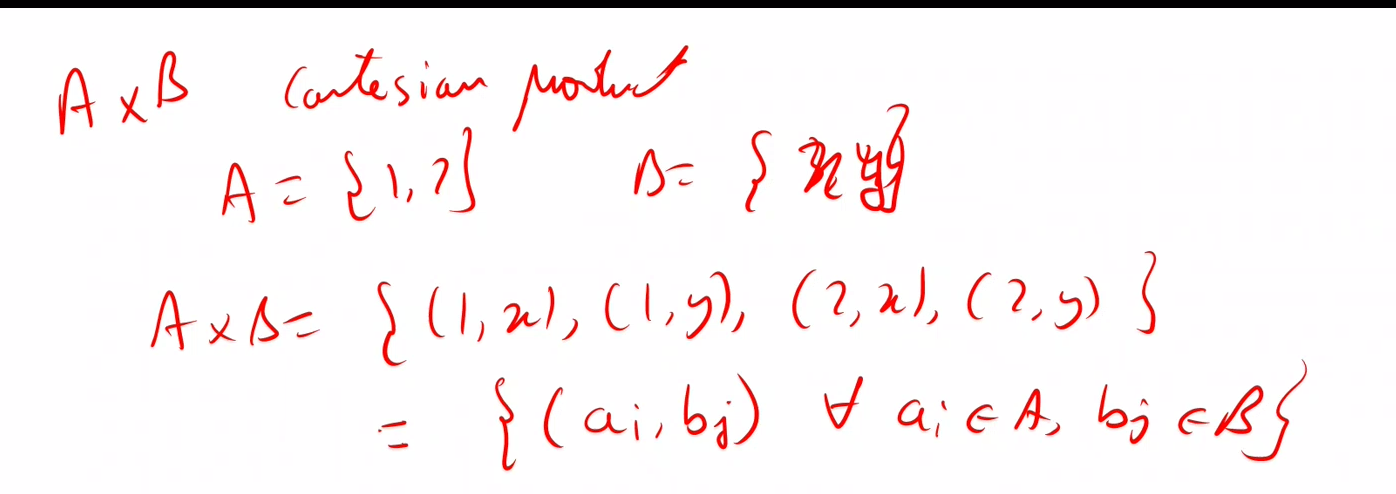 A × B Cartesian product
A = {1, 2} B = {
A × B = {(1, x), (1, y), (2, x), (2, y)}
= {(ai, bj) ∀ ai ∈ A, bj ∈ B}